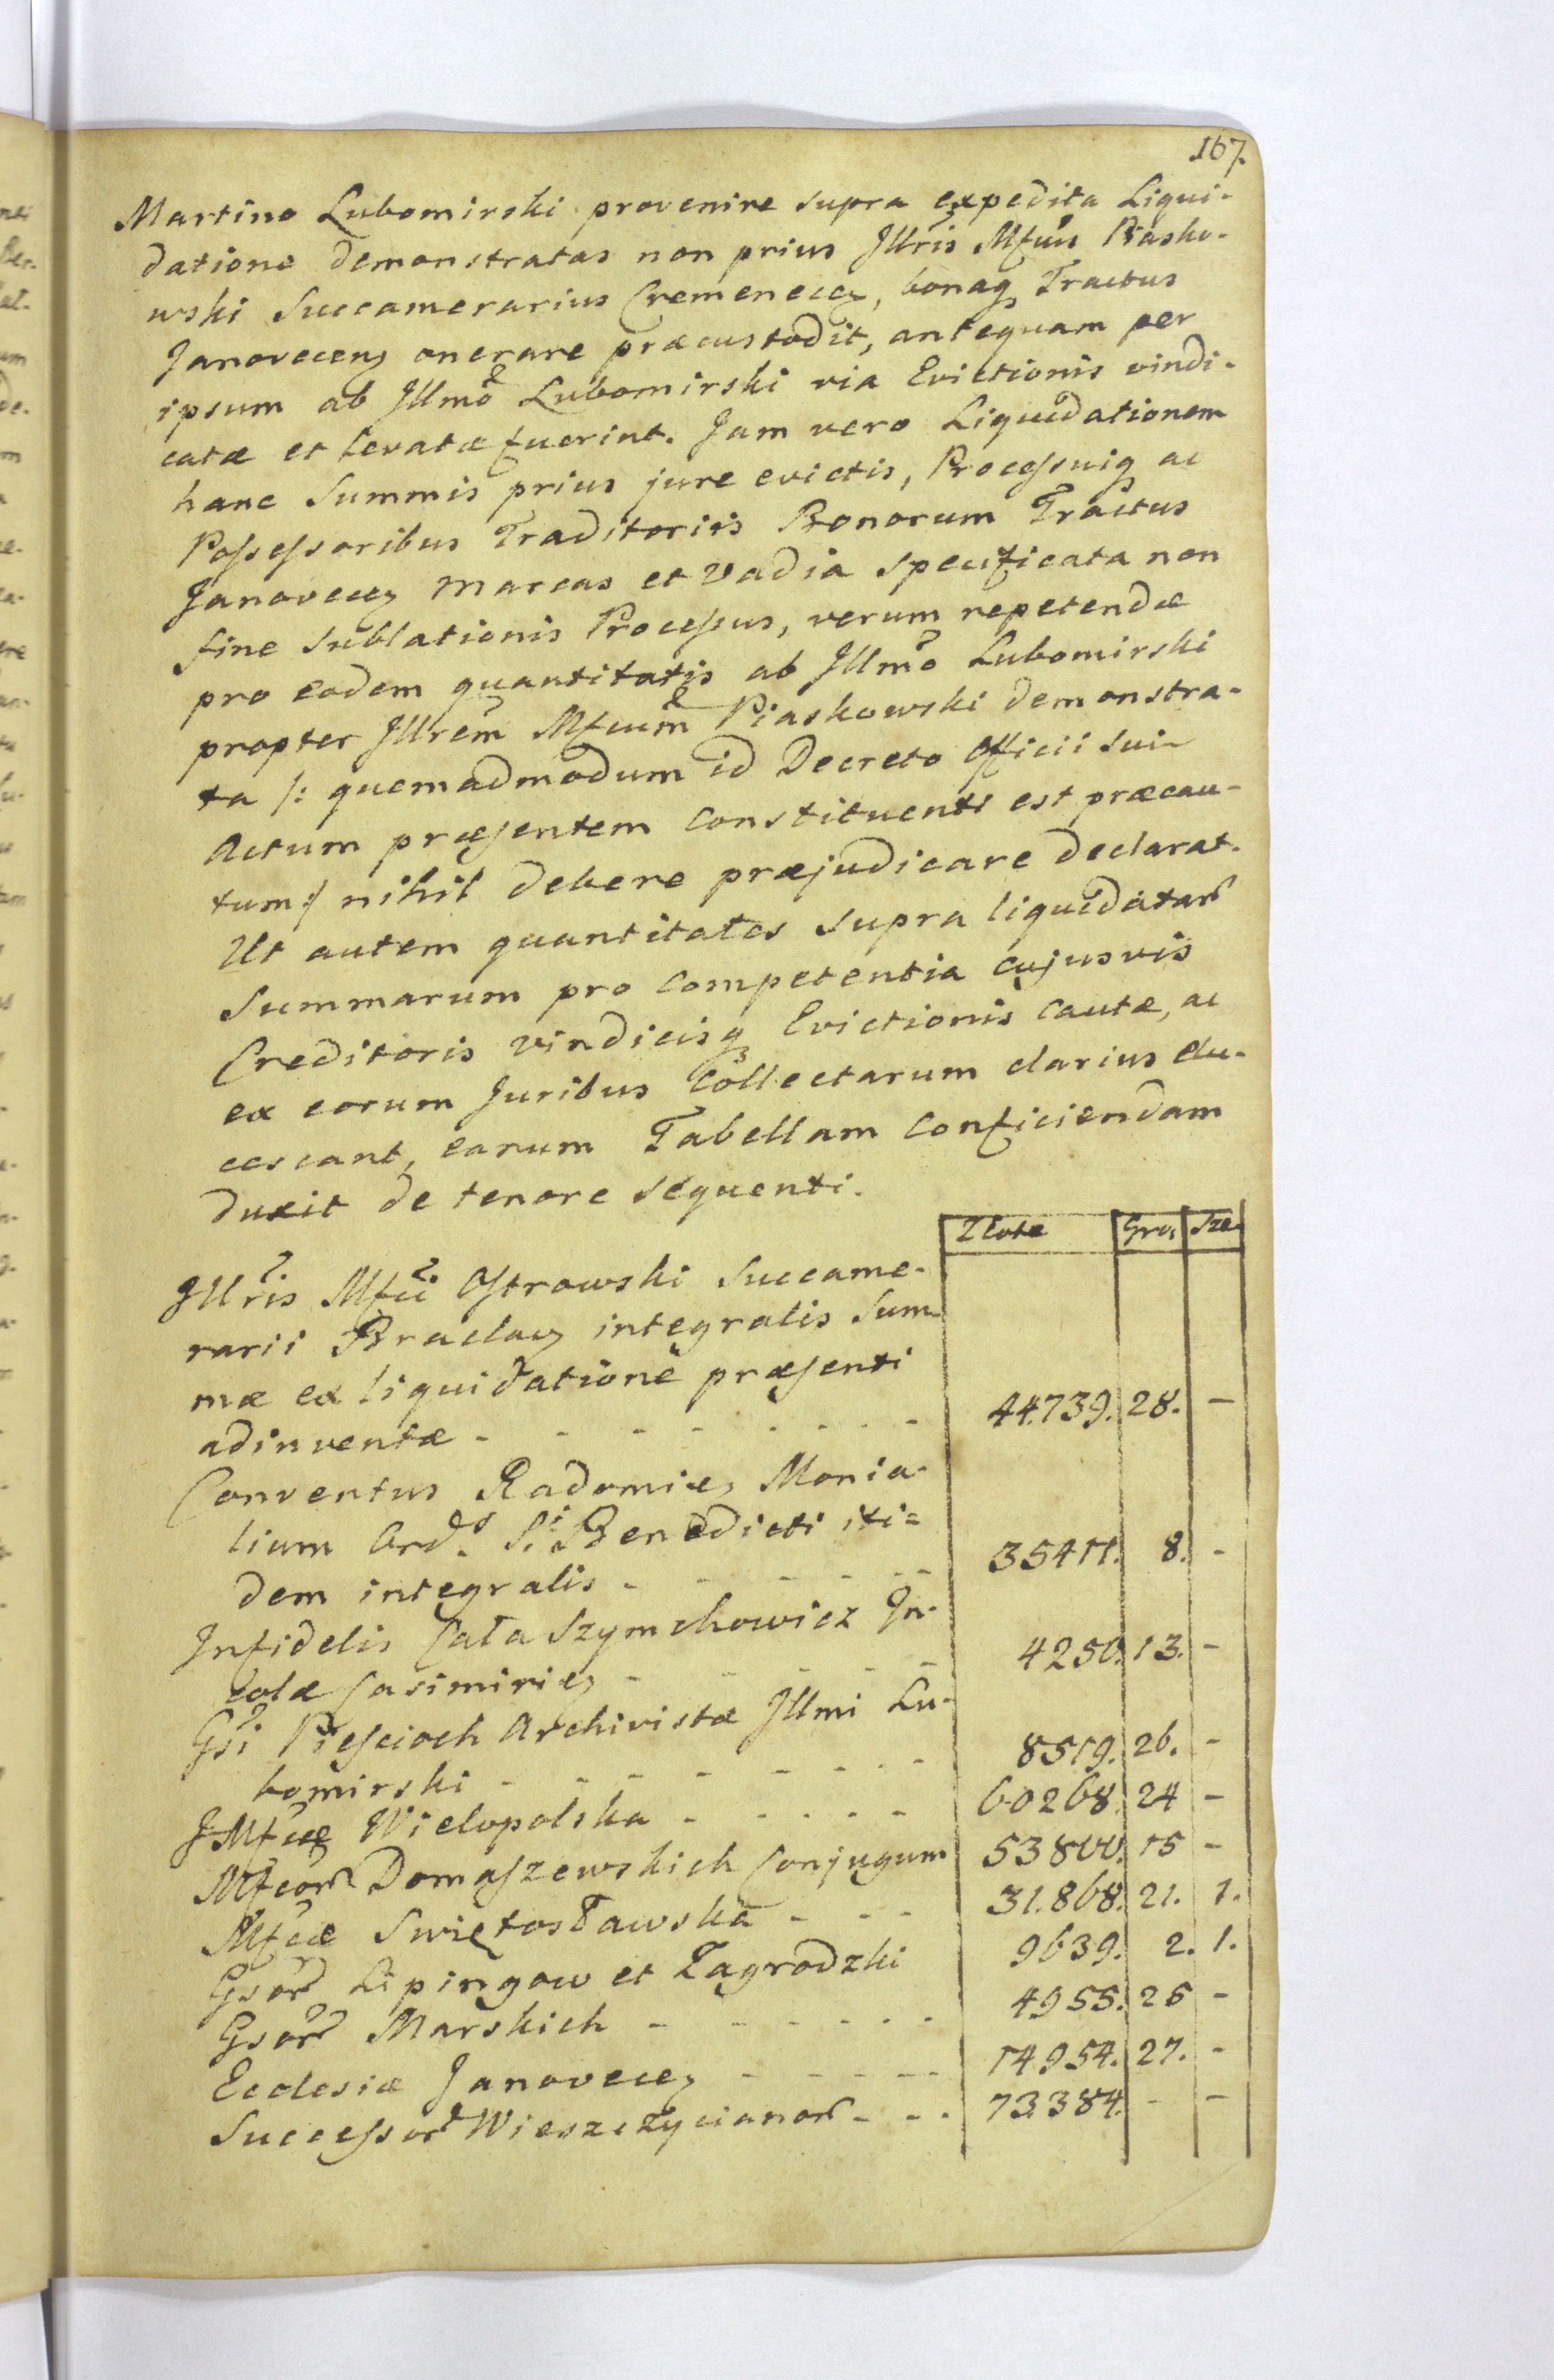 167.
Martino Lubomirski provenire supra expedita Liqui-
datione demonstratas non prius Jllris Mfcus Piasko-
wski Succamerarius Cremenecen, bonaq Tractus
Janovecens onerare præcustodit, antequam per
ipsum ab Jllmo Lubomirski via Evictionis vindi-
catæ et levatæ fuerint. Jam vero Liquidationem
hanc Summis prius jure evictis, Processuiq ac
Possessoribus Traditoriis Bonorum Tractus
Janovecen Marcas et Vadia specificata non
fine Sublationis Processus, verum repetendæ
pro eadem quantitatis ab Jllmo Lubomirski
propter Jllrem Mfcum Piaskowski demonstra-
ta /: quemadmodum id Decreto Officii sui
Actum præsentem Constituenti est præcau-
tum :/ nihil debere præjudicare declarat.
Ut autem quantitates supra liquidatar
Summarum pro Competentia cujusvis
Creditoris vindiciisq Evictionis Cautæ, ac
ex eorum Juribus Collectarum clarius elu-
cescant, earum Tabellam Conficiendam
duxit de tenore sequenti.
Złote Gro, Sze
Jllris Mfci Ostrowski Succame-
rarii Braclav integralis Sum-
mæ ex liquidatione præsenti
adinventæ - - - - - - - 44.739. 28. -
Conventus Radomien Monia-
lium Ord. S. Benedicti iti=
dem integralis - - - - - - 35411. 8. -
Infidelis Cała Szymchowicz In-
colæ Casimirien - - - - - 4250. 13. -
Gsi Piescioch Archivistæ Jllmi Lu-
bomirski - - - - - - - - 8519. 26. -
JMfcæ Wielopolska - - - - - 60268. 24 -
Mfcor Domaszewskich Conjugum 53800. 15 -
Mfcæ Swiętosławska - - - 31.868. 21. 1.
Gsor Lipingow et Zagrodzki 9639. 2. 1.
Gsor Marskich - - - - - - 4955. 25 -
Ecclesiæ Janovecen - - - - - 14954. 27. -
Successor Wieszczycianor - - - 73.384. - -